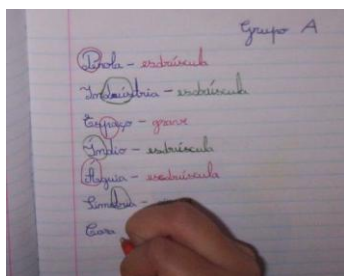 Grupo A
Pérola - esdrúxula
Indústria - esdrúxula
Espaço - grave
Índio - esdrúxula
Águia - esdrúxula
Casa